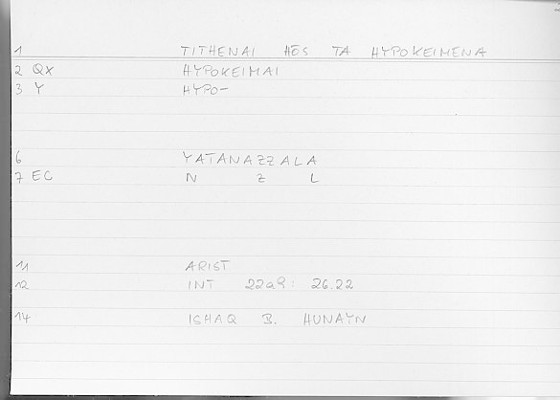 1 TITHENAI HŌS TA HYPOKEIMENA
2 QX HYPOKEIMAI
3 Y HYPO-
6 YATANAZZALA
7 EC N Z L
11 ARIST
12 INT 22a9: 26.22
14 ISHAQ B. HUNAYN